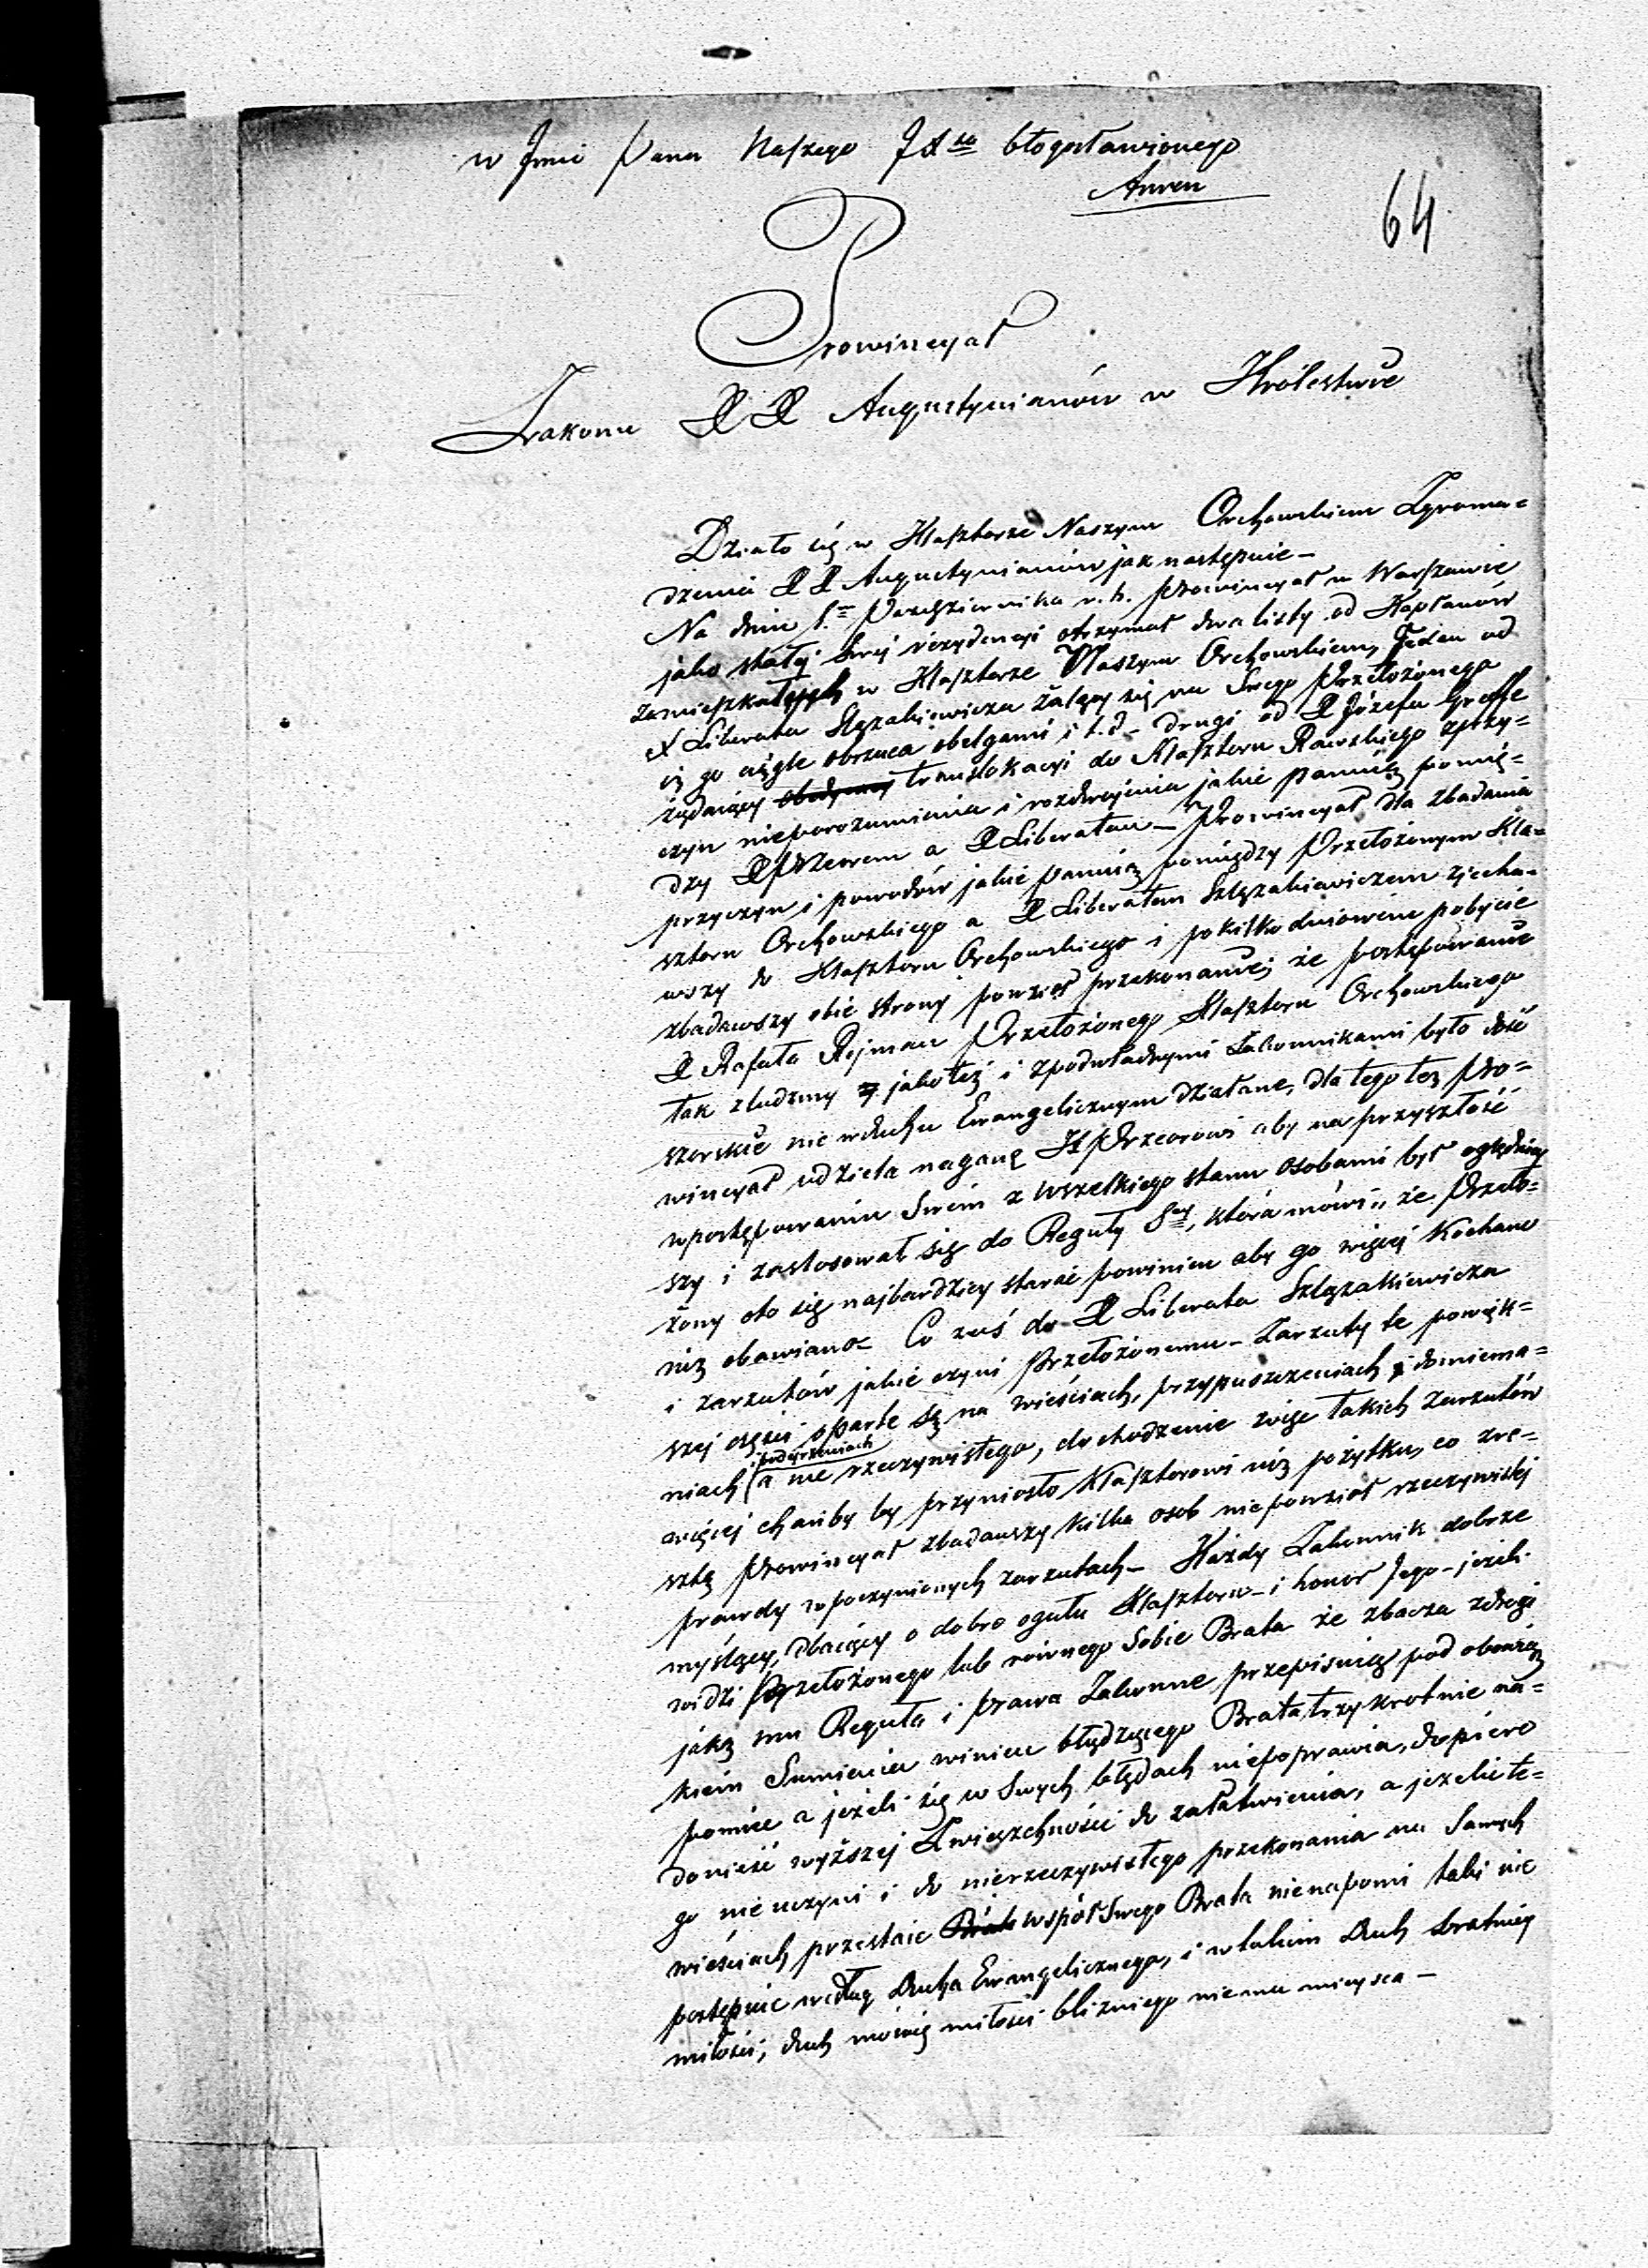 w Jmie Pana Naszego JXsa błogosławionego
Amen
64
Prowincyał
Zakonu XX Augustyanów w Królestwie
Działo się w Klasztorze Naszym Orchowskiem Zgroma=
dzenia XX Augustynianów jak następuie –
Na dniu 1.go Pazdziernika r. b. Prowincyał w Warszawie
jako stałéj Swéj rezydencyi otrzymał dwa listy od Kapłanów
zamieszkałych w Klasztorze Naszym Orchowskiem, Jeden od
X Liberata Szlązakiewicza żalący się na Swego Przełożonego
iż go ciągle obrzuca obelgami i t. d – drugi od X Józefa Greffe
żądaiący translokacyi do Klasztoru Rawskiego zprzy=
czyn nieporozumienia i rozdwojenia jakie panuią pomię=
dzy XPrzeorem a XLiberatem – Prowincyał dla zbadania
przyczyn i powodów jakie panuią pomiędzy Przełożonym Kla=
sztoru Orchowskiego a X Liberatem Szlązakiewiczem zjecha=
wszy do Klasztoru Orchowskiego i pokilko dniowem pobycie
zbadawszy obie strony powziął przekonanie; że postępowanie
X Rafała Rejman Przełożonego Klasztoru Orchowskiego
tak zludzmy jakoteż i zpodwładnymi Zakonnikami było dość
szorskie nie wduchu Ewangelicznym działane, dla tego też Pro=
wincyał udziela naganę XPrzeorowi aby na przyszłość
wpostępowaniu Swém z wszelkiego stanu osobami był oględniey
szy i zastosował się do Reguły Sey, która mówi „że Przeło=
żony oto się najbardziey starać powinien aby go więcej kochano
niż obawiano= Co zaś do X Liberata Szlązakiewicza
i zarzutów jakie czyni Przełożonemu – Zarzuty te powięk=
szej części oparte są na wieściach, przypuszczeniach i domniema=
niach (i podeyrzeniach a nie rzeczywistego, dochodzenie więc takich zarzutów
więcej chańby by przyniosło Klasztorowi niż pożytku, co zre=
sztą Prowincyał zbadawszy kilka osob niepowziął rzeczywistej
prawdy wpoczynionych zarzutach – Każdy Zakonnik dobrze
myślący, dbaiący o dobro ogułu Klasztoru – i honor Jego – jeżeli
widzi Przełożonego lub równego Sobie Brata że zbacza zdrogi
jaką mu Reguła i prawa Zakonne przepisuią pod obowiąz
kiem Sumienia winien błądzącego Brata trzykrotnie na=
pomnie a jeżeli się w Swych błędach niepoprawia, dopiero
donieść wyższej Zwierzchności do załatwienia, a jeżelite=
go nieuczyni i do nierzeczywistego przekonania na Samych
wieściach przestaie współ Swego Brata nienapomi taki nie
postępuie według Ducha Ewangelicznego, i wtakim Duch bratniey
miłości, duch mówię miłości bliźniego niema mieysca –